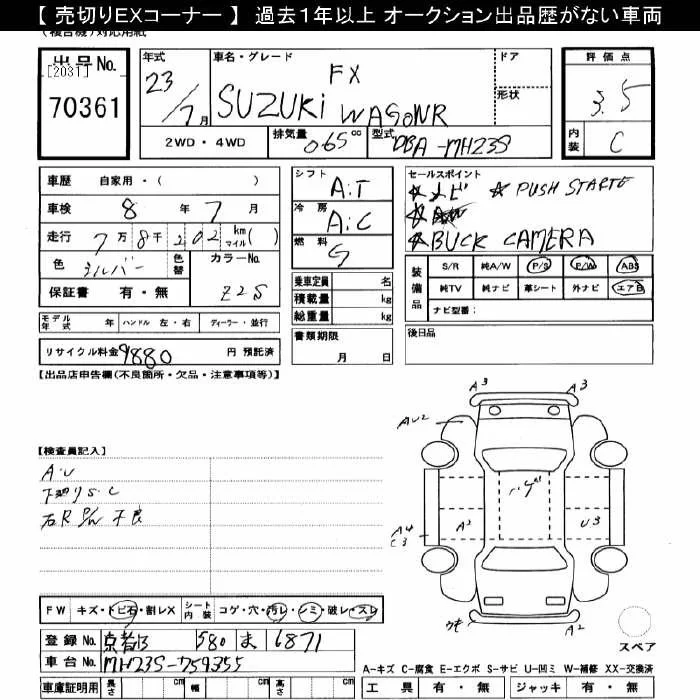 【 売切りEXコーナー 】 過去１年以上 オークション出品歴がない車両
(複合機)対応用紙
出品No.
[2031]
70361
年式
23/7月
車名・グレード
FX
SUZUKi WAGONR
ドア
形状
評価点
3.5
内装
C
2WD・4WD
排気量
065cc
型式
DBA-MH23S
車歴 自家用・( )
車検 8年7月
走行 7万8千202 km マイル( )
色 シルバー 色替
カラーNo.
Z2S
保証書 有・無
モデル年式 年 ハンドル 左・右 ディーラー・並行
リサイクル料金 9880 円 預託済
シフト
A:T
冷房
A:C
燃料
G
乗車定員 名
積載量 kg
総重量 kg
書類期限
月 日
セールスポイント
☆ナビ ☆PUSH STARTE
☆BUCK CAMERA
装備品
S/R 純A/W P/S P/W ABS
純TV 純ナビ 革シート 外ナビ エアB
ナビ型番:
後日品
【出品店申告欄(不良箇所・欠品・注意事項等)】
【検査員記入】
A・U
下廻りS・C
右R P/W 不良
A3 A3
AU2
A4
C3
A2
U3
A2
FW キズ・トビ石・割レX シート内装 コゲ・穴・汚レ・シミ・破レ・スレ
登録No. 京都 580 ま 6871
車台No. MH23S-759355
車庫証明用 長さ cm 幅 cm 高さ cm
スペア
A-キズ C-腐食 E-エクボ S-サビ U-凹ミ W-補修 XX-交換済
工具 有・無 ジャッキ 有・無